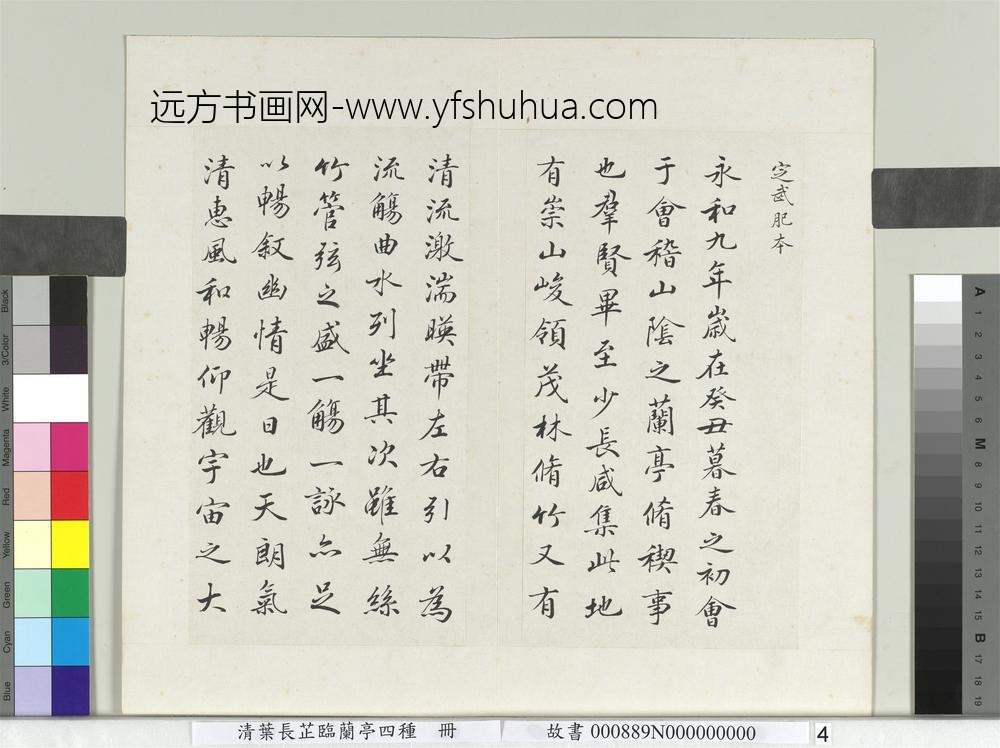 远方书画网-www.yfshuhua.com
定武肥本
永和九年歲在癸丑暮春之初會
于會稽山陰之蘭亭脩稧事
也羣賢畢至少長咸集此地
有崇山峻領茂林脩竹又有
清流激湍暎帶左右引以為
流觴曲水列坐其次雖無絲
竹管弦之盛一觴一詠亦足
以暢敘幽情是日也天朗氣
清惠風和暢仰觀宇宙之大
Black
3/Color
White
Magenta
Red
Yellow
Green
Cyan
Blue
A
1
2
3
4
5
6
M
8
9
10
11
12
13
14
15
B
17
18
19
清葉長芷臨蘭亭四種 冊
故書 000889N000000000
4